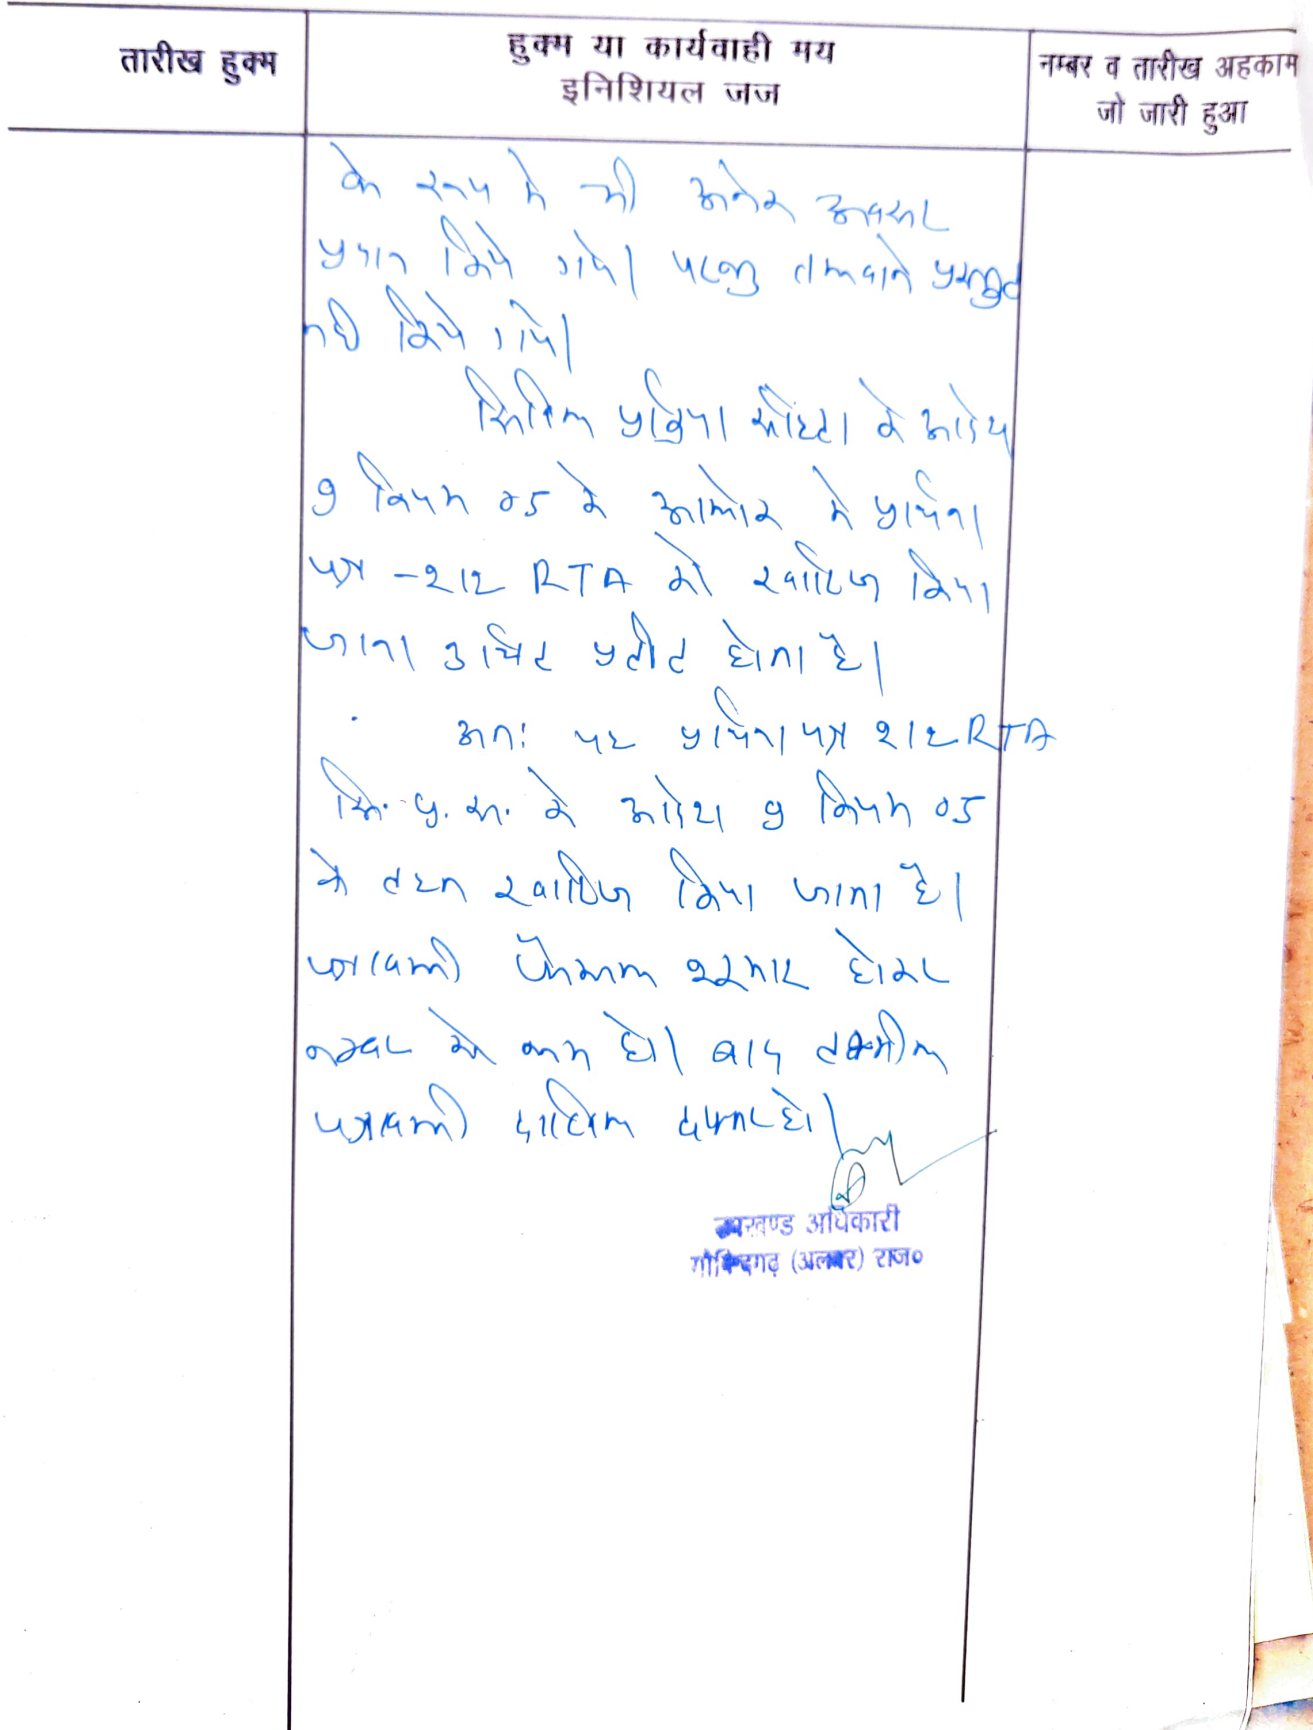 तारीख हुक्म
हुक्म या कार्यवाही मय
इनिशियल जज
नम्बर व तारीख अहकाम
जो जारी हुआ
के रूप मे भी अनेक अवसर
प्रदान किये गये। परन्तु तलवाने प्रस्तुत
नही किये गये।
सिविल प्रक्रिया संहिता के आदेश
9 नियम 05 के आलोक मे प्रार्थना
पत्र -212 RTA को खारिज किया
जाना उचित प्रतीत होता है।
अतः यह प्रार्थना पत्र 212 RTA
सि. प्र. स. के आदेश 9 नियम 05
के तहत खारिज किया जाता है।
पत्रावली फैसल शुमार होकर
नम्बर से कम हो। बाद तकमील
पत्रावली दाखिल दफ्तर हो।
उपखण्ड अधिकारी
गोविन्दगढ़ (अलवर) राज०